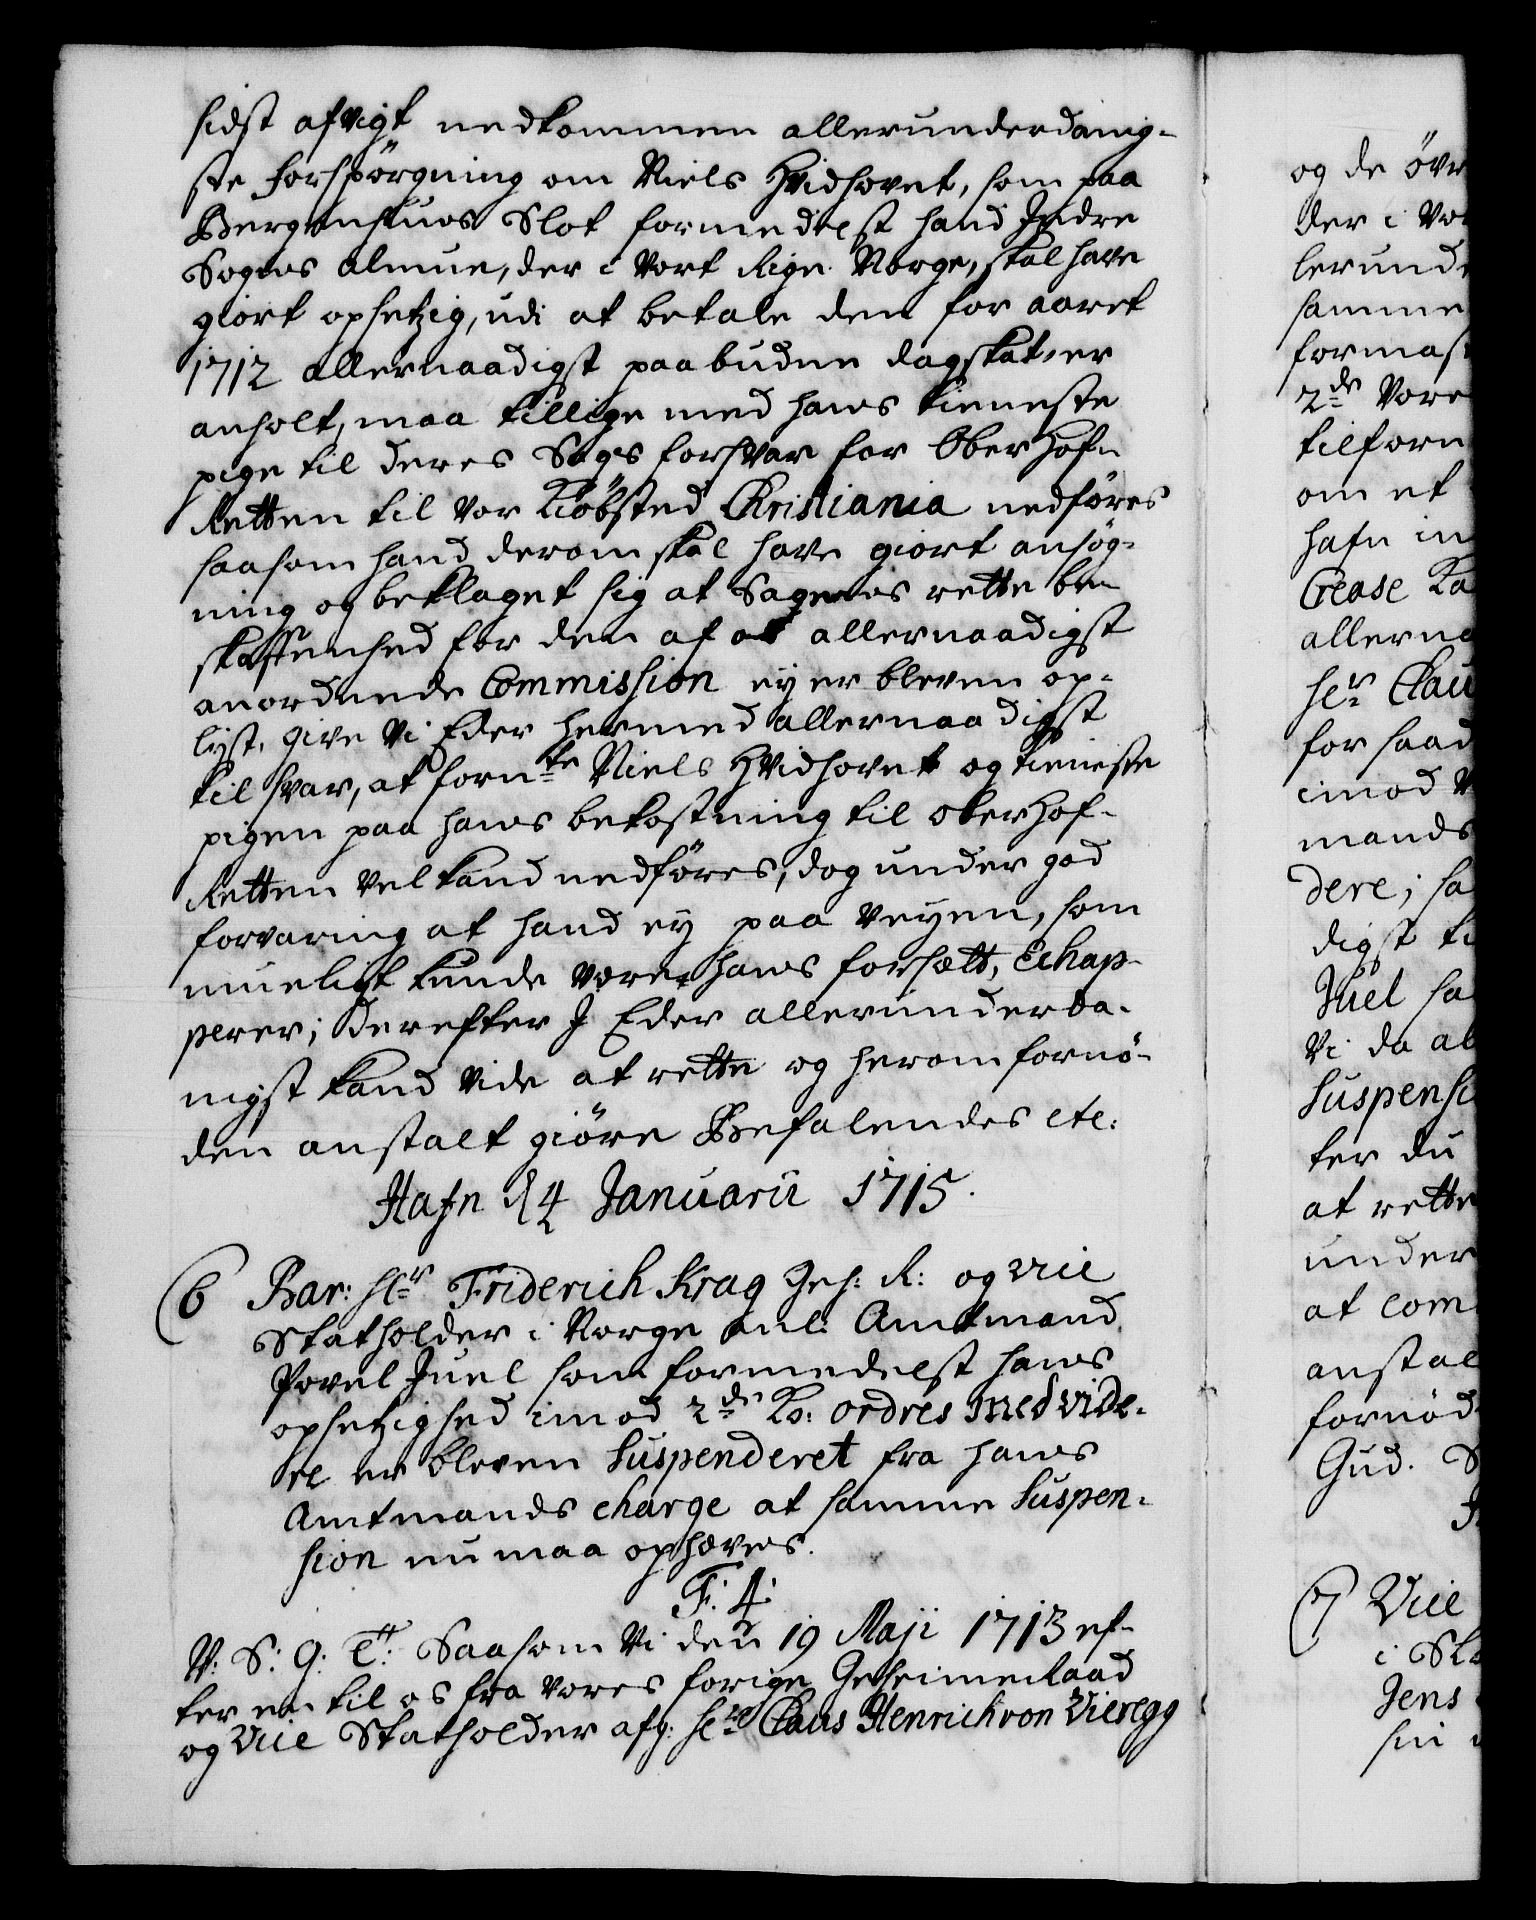 sidst afvigt nedkommen allerunderdanig-
ste forspörgning om Niels Hvidhovet, som paa
Bergenhuus Slot formedelst hand Indre
Sogns almue, der i Vort Rige Norge, skal have
giort opsetzig, udi at betale den for aaret
1712 allernaadigst paabudne dagskat, er
anholt, maa tillige med hans tieneste
pige til deres Sags forsvar for Oberhof-
Retten til vor Kiöbsted Christiania nedföres
saasom hand derom skal have giort ansög-
ning og beklaget sig at Sagens rette be-
skaffenhed for den af os allernaadigst
anordnede Commission ey er bleven op-
lyst. give Vi Eder hermed allernaadigst
til svar, at forn.te Niels Hvidhovet og tieneste
pigen paa hans bekostning til oberhof-
Retten vel kand nedföres, dog under god
forvaring at hand ey paa veyen, som
mueligt kunde være hans forsætt, echap-
perer; Derefter I Eder allerunderda-
nigst kand vide at rette og herom fornö-
den anstalt giöre Befalendes etc:
Hafn d 4 Januarii 1715.
6 Bar: Hr Friderich Krag Geh: R: og Vice
Statholder i Norge anl: Amtmand
Povel Juel som formedelst hans
opsetzighed imod 2de Ko: ordres med vide-
re er bleven Suspenderet fra hans
Amtmands charge at samme Suspen-
sion nu maa ophæves.
F: 4:
V: S: G: T: Saasom Vi den 19 Maji 1713 ef-
ter en til os fra vores forige Geheimeraad
og Vice Statholder afg: Hr Claus Henrich von Vieregg
og de övr
der i Vor
lerunde
samme
formast
2de Vore
tilforn
om et
hafn in
Crease Ko
allerna
Hr Clau
for saad
imod V
mands
dere; sa
digst ti
Juel sa
Vi da al
Suspensi
ter du
at rette
under
at com
anstal
fornöd
Gud. S
7 Vice
i Sta
Jens
sin